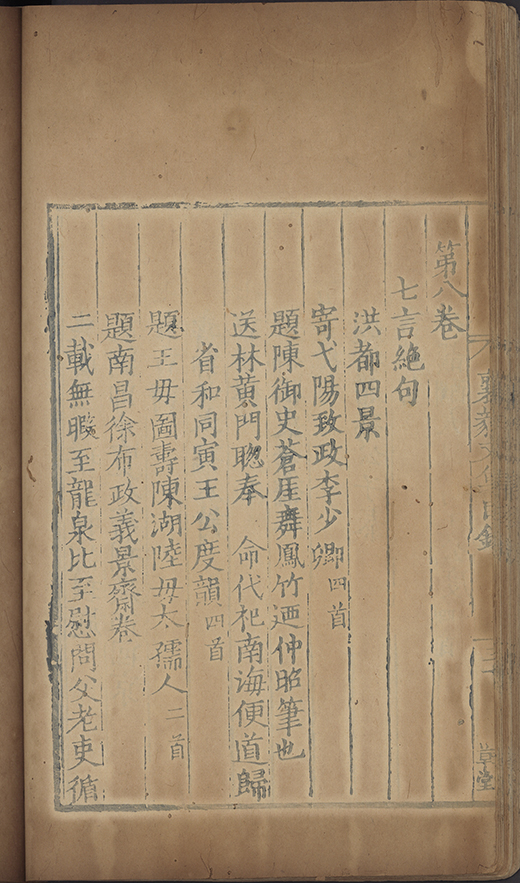 第八卷
七言絶句
洪都四景
寄弋陽致政李少卿四首
題陳御史蒼厓舞鳳竹廼仲昭筆也
送林黃門聦奉 命代祀南海便道歸
省和同寅王公度韻四首
題王毋圖壽陳湖陸毋太孺人二首
題南昌徐布政義景齋卷
二載無暇至龍泉比至慰問父老吏循
草堂